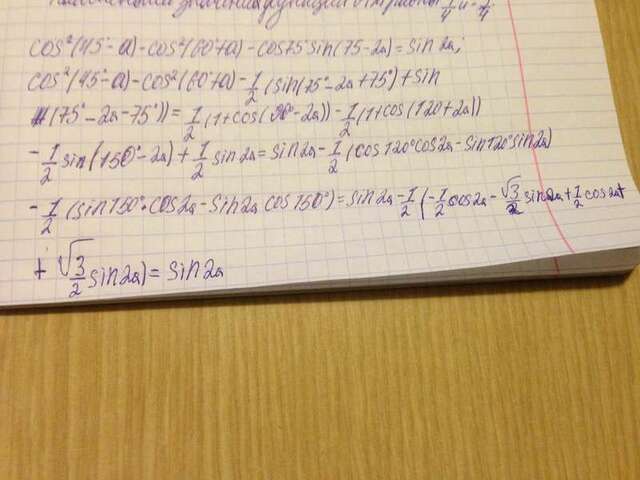 значений функции 1/4 и -1/4
cos²(45°-a)-cos²(60°+a)-cos75°sin(75-2a)=sin2a;
cos²(45°-a)-cos²(60°+a)-1/2(sin(75°-2a+75°)+sin
(75°-2a-75°))=1/2(1+cos(90°-2a))-1/2(1+cos(120+2a))
-1/2sin(150°-2a)+1/2sin2a=sin2a-1/2(cos120°cos2a-sin120°sin2a)
-1/2(sin150°·cos2a-sin2a cos150°)=sin2a-1/2(-1/2cos2a-√3/2sin2a+1/2cos2a+
+√3/2sin2a)=sin2a